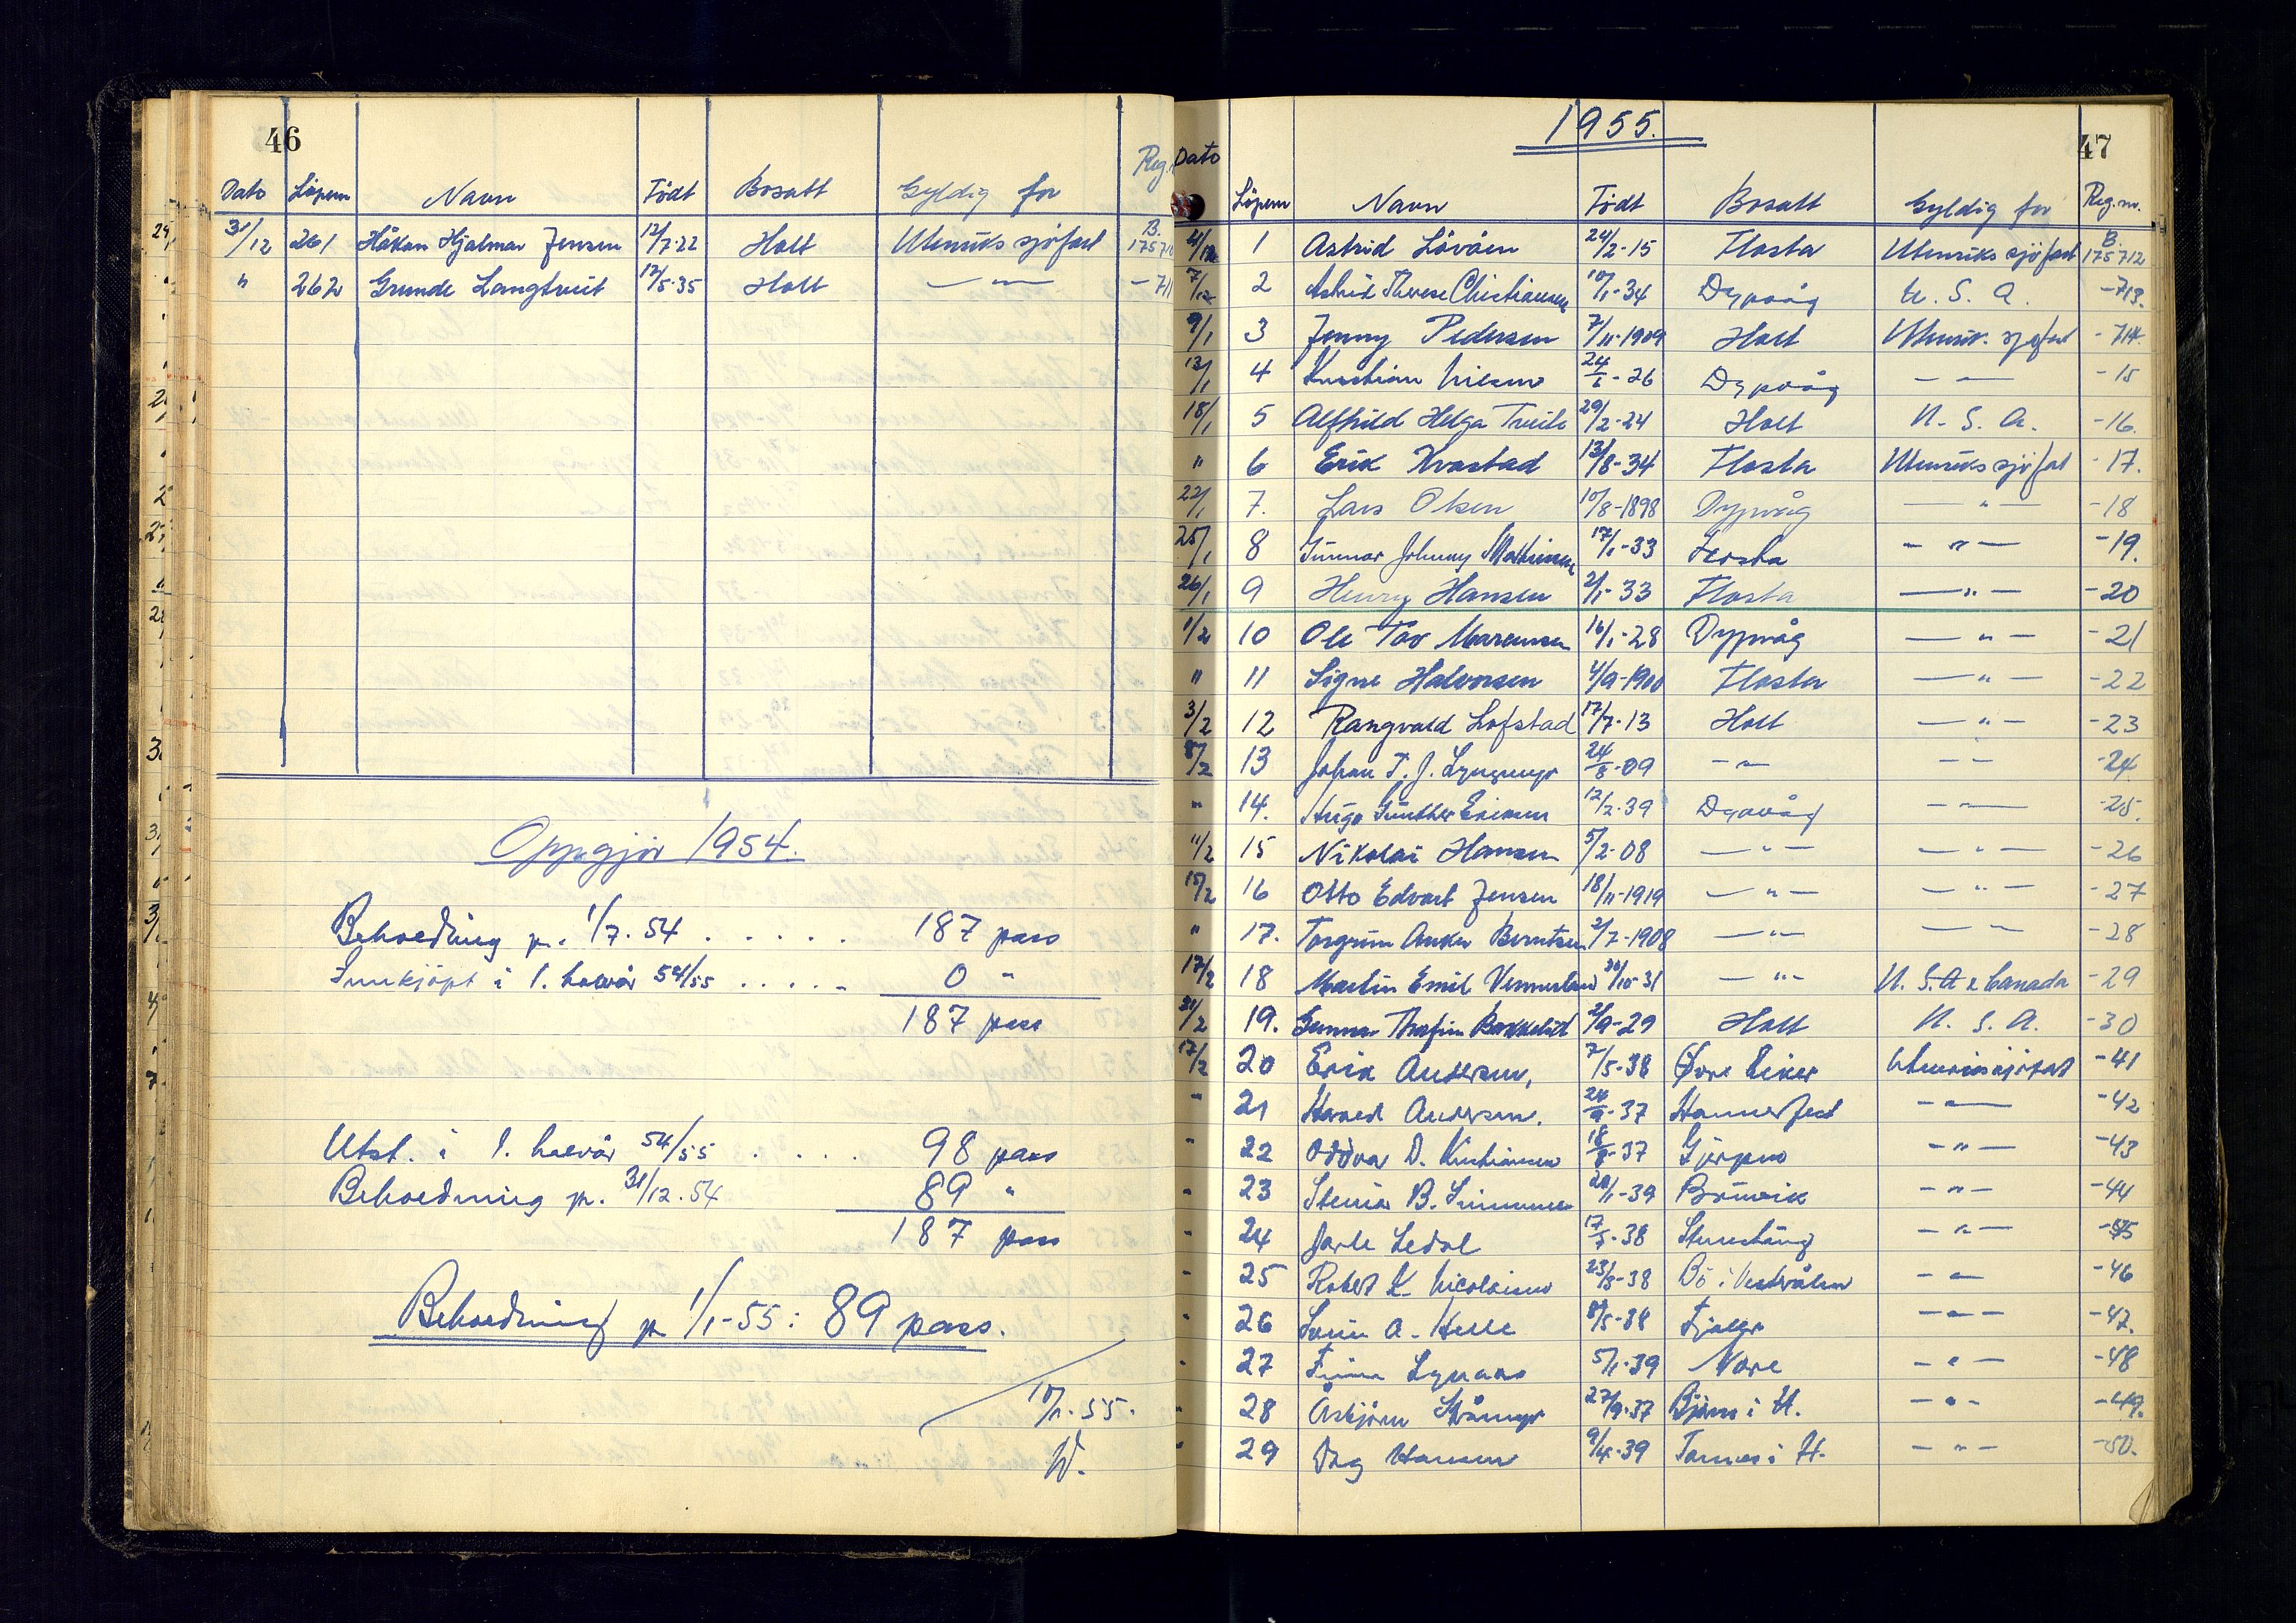 46
Dato Löpenr Navn Födt Bosatt Gyldig for Reg.
31/12 261 Håkon Hjalmar Jensen 12/7-22 Holt Utenriks sjöfart B. 175710
" 262 Grunde Langtveit 12/5-35 Holt — " — - 711
Oppgjör 1954.
Behoedning p. 1/7. 54 . . . . . 187 pass
Innkjöpt i 1. halvår 54/55 . . . . . 0 "
187 pass
Utst. i 1. halvår 54/55 . . . . 98 pass
Behoedning p. 31/12. 54 89 "
187 pass
Behoedning p 1/1-55: 89 pass.
10/1. 55.
W.
1955.
47
Dato Löpenr Navn Födt Bosatt Gyldig for Reg.nr.
1 Astrid Lövåen 24/2-15 Flosta Utenriks sjöfart B. 175712
2 Astrid Therese Christiansen 10/1-34 Dypvåg U. S. A. -713.
9/1 3 Jenny Pedersen 7/11-1909 Holt Utenr. sjöfart - 714
13/1 4 Kristian Nilsen 24/1-26 Dypvåg — — - 15
18/1 5 Alfhild Helga Tveite 29/2-24 Holt U. S. A. -16.
" 6 Erik Kvastad 13/8-34 Flosta Utenriks sjöfart -17.
22/1 7. Lars Olsen 10/8-1898 Dypvåg — " — -18
25/1 8 Gunnar Johnny Mathisen 17/1-33 Flosta — " — -19.
26/1 9 Henry Hansen 2/1-33 Flosta — " — -20
1/2 10 Ole Tov 16/1-28 Dypvåg — " — -21
" 11 Signe Halvorsen 4/9-1900 Flosta — " — -22
3/2 12 Rangvald Lofstad 17/7-13 Holt — " — -23
8/2 13 Johan T. J. 24/8-09 — " — — -24
" 14. Hugo Günther Eriksen 12/2-39 Dypvåg — " — -25.
11/2 15 Nikolai Hansen 5/2-08 — " — — " — -26
15/2 16 Otto Edvart Jensen 18/11-1919 — " — — " — -27
" 17. Torgrim Anker Berntsen 2/7-1908 — " — — — -28
17/2 18 Martin Emil 30/10-31 — " — U. S. A & Canada -29
21/2 19. Gunnar Thorfinn Bakkelid 2/9-29 Holt U. S. A. -30
17/2 20 Erik Andersen, 7/5-38 Øvre Eiker Utenrikssjöfart -41
" 21 Harald Andersen. 24/9-37 Hammerfest — " — -42
" 22 Oddvar D. Kristiansen 18/8-37 Gjerpen — " — -43
" 23 B. 20/1-39 — " — -44
" 24 Jarle Ledal 17/5-38 — " — -45
" 25 Robert K. Nicolaisen 23/8-38 Bö i Vesterålen — " — -46
" 26 A. Helle 8/5-38 — " — -47.
" 27 Finn 5/1-39 Nore — " — -48
" 28 Asbjörn 27/9-37 i H. — " — -49.
" 29 Dag Hansen 9/4-39 i H. — " — -50.